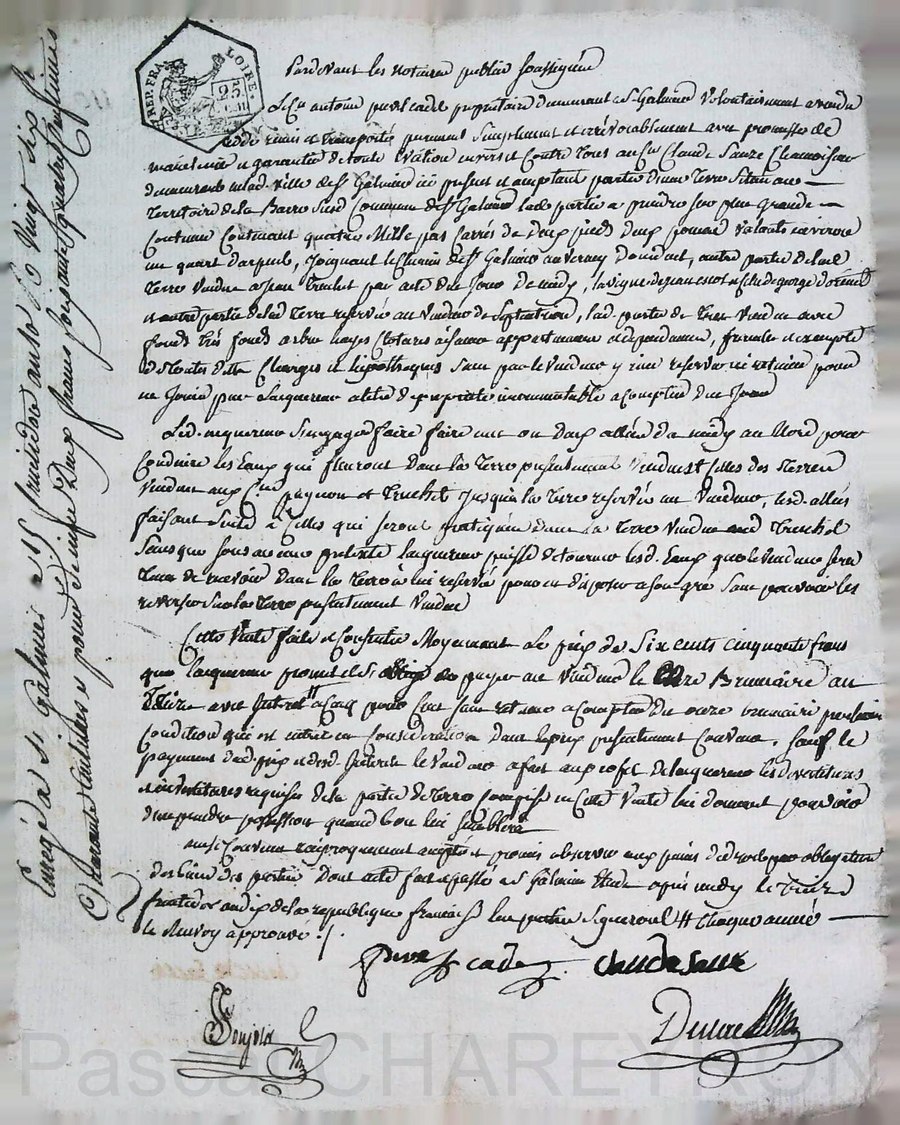 REP. FRA. LOIRE.
25.
Pardevant les Notaires publics soussignés
Le Cn antoine cadet propriétaire demeurant a St Galmier Volontairement a vendu
cédé remis et transporté purement Simplement et irrévocablement avec promesse de
maintenir et garantir de toute éviction envers et Contre tous au Cn Claude Sauze
demeurant en lad. ville de St Galmier ici présent et acceptant partie d'une Terre Située au
territoire de la Barre Susd Commune de St Galmier lad. partie a prendre Sur plus grande
Contenue Contenant quatre Mille pas Carrés de deux pieds deux pouces Valants environ
un quart d'arpent, Joignant le Chemin de St Galmier au Verney , autre partie de lad.
terre Vendue a Jean Truchet par acte de ce Jour de midy, la vigne de george
et autre partie de lad terre reservée au Vendeur de Septentrion, lad. partie de terre Vendue avec
fonds très fonds arbres aisances appartenances et dépendances, franche et exempte
de toutes dettes Charges et hypothèques Sans par le Vendeur y rien réserver ni retenir pour
en Jouir par l'acquereur a titre de propriété incommutable a Compter de ce Jour
Led. acquereur S'engage faire faire une ou deux allées de midy au Nord pour
Conduire les Eaux qui fleuront dans la Terre présentement Vendue et Celles des terres
Vendues aux Cns peyron et Truchet Jusqu'à la Terre reservée au Vendeur, lesd. allées
faisant Suite à Celles qui Seront pratiquées dans la Terre Vendue aud Truchet
Sans que Sous aucun prétexte l'acquereur puisse détourner lesd. Eaux que le Vendeur Sera
tenu de recevoir dans la terre à lui reservée pour en disposer a Son gré Sans pouvoir les
reverser Sur la terre présentement Vendue
Cette Vente faite et Consentie Moyennant Le prix de Six cents cinquante francs
que l'acquereur promet et S'oblige de payer au Vendeur le onze Brumaire an
treize avec Interet a Cinq pour Cent Sans retenue a Compter du onze brumaire prochain
Condition qui est entrée en Considération dans le prix présentement Convenu. Sauf le
payement dud prix et desd. Interets le Vendeur a fait aux profit de l'acquereur les devetitures
et investitures requises de la partie de terre Comprise en Cette Vente lui donnant pouvoir
d'en prendre possession quand bon lui Semblera
ainsi Convenu réciproquement accepté et promis observer aux peines de droit par obligation
des biens des parties Dont acte fait et passé a St Galmier Etude après midy le treize
fructidor an dix de la republique française les parties Signeront # Chaque année
le Renvoy approuvé ./.
cadet claude sauze
Dulac
Enregé à St galmier le 15 fructidor an 10 f° Vingt Six
quarante Centimes et pour Double deux francs soixante quatre Centimes
Pascal CHAREYRON